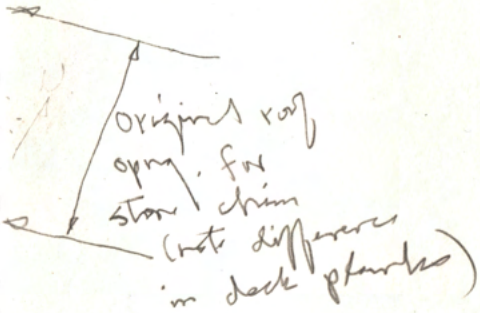 original roof
opng. for
stove chim
(note difference
in deck planks)